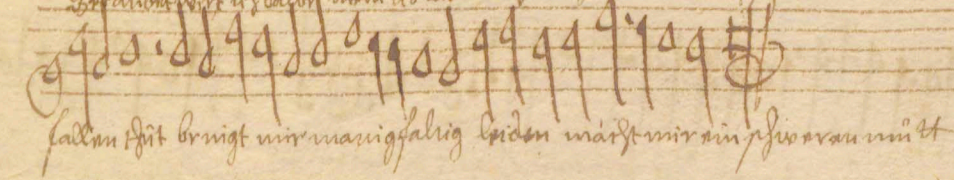 fallen thůt bringt mir manigfaltig leiden macht mir ein schweren můtt